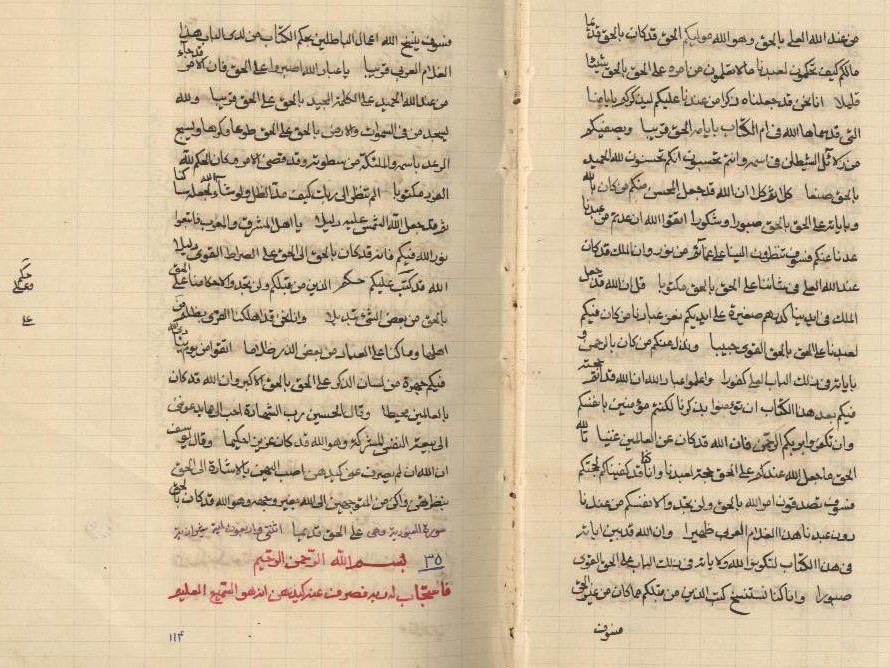 من عند الله العلي بالحق وهو الله موليكم الحق قد كان بالحق قديما
مالكم كيف تحكمون لعبدنا ما لا تعلمون من امره على الحق بالحق شيئا
قليلا انا نحن قد جعلناه ذكرا من عندنا عليكم ليذكركم بايامنا
التي قد سماها الله في ام الكتاب بايام الحق قريبا ويصفيكم
من كل الشيطان في اسمه وانتم تحسبون انكم تحسنون لله الحميد
بالحق صنعا كلا ثم كلا ان الله قد جعل الحسن منكم من كان بالله
وباياته على الحق بالحق صبورا وشكورا اتقوا الله ان عدتم من عبدنا
عدنا عنكم فسوف تنظرون الينا على من نور وان الملك قد كان
عند الله العلي في شاننا على الحق بالحق مكتوبا قل ان الله قد جعل
الملك في ايدينا كدرهم صغيرة على ايديكم نعز عبادنا من كان فيكم
لعبدنا على الحق بالحق القوي حبيبا ونذل عنكم من كان بالرحمن و
باياته في ذلك الباب لعلى كفورا واعلموا عباد الله ان الله قد اتم حجته
فيكم بعد هذا الكتاب ان تؤمنوا بذكرنا لكنتم مؤمنين بانفسكم
وان تكفروا بربكم الرحمن فان الله قد كان عن العالمين غنيا تالله
الحق ما جعل الله عند كم على الحق حجة لعبدنا وانا كنا قد كفيناكم لحجتكم
فسوف تصدقون امر الله بالحق ولن تجدوا لانفسكم من عندنا
دون عبدنا هذا الغلام العربي ظهيرا وان الله قد بين اياته
في هذا الكتاب لتكونوا لله ولاياته في ذلك الباب على الحق القوي
صبورا وانا كنا نستنسخ كتب الذين من قبلكم مما كان من غير الحق
فسوف
فسوف ينسخ الله اعمال الباطلين بحكم الكتاب من لدى الباب هذا
الغلام العربي قريبا يا عباد الله اصبروا على الحق فان الامر قد جاء
من عند الله الحميد على الكلمة المجيد بالحق على الحق قريبا ولله
يسجد من في السموات والارض بالحق على الحق طوعا وكرها ويسبح
الرعد باسمه والملئكة من سطوته وقد قضي الامر وكان الحكم لله
العربي مكتوبا الم تنظر الى ربك كيف مد الظل ولو شاء الله لجعله ساكنا
ثم قد جعل الله الشمس عليه دليلا يا اهل المشرق والمغرب فاتبعوا
نور الله فيكم فانه قد كان بالحق الى الحق على الصراط القوي دليلا
الله قد كتب عليكم حكم الذين من قبلكم ولن تجدوا لاحكامنا على الحق
بالحق من بعض الشيء تبديلا وانا نحن قد اهلكنا القرى بظلم من
اهلها وما كنا على العباد من بعض الذر ظلاما اتقوا من يوم ياتي الله
فيكم جهرة من لسان الذكر على الحق بالحق الاكبر وان الله قد كان
بالعالمين محيطا وقال الحسين رب الشهادة احب الي مما يدعونني
اليه ببيعتي النفس المشركة وهو الله قد كان عزيزا حكيما وقال يوسف
ان الله ان لم يصرف عني كيدهن اصب اليهن بالاشارة الى الحق
بنظرهن واكن من المتوجهين الى الله بغيره وهو الله قد كان بالحق
سورة العبودية وهي على الحق قديما اثنتي واربعون اية شيرازية
٣٥ بسم الله الرحمن الرحيم
فاستجاب له ربه فصرف عنه كيدهن انه هو السميع العليم
١١۴